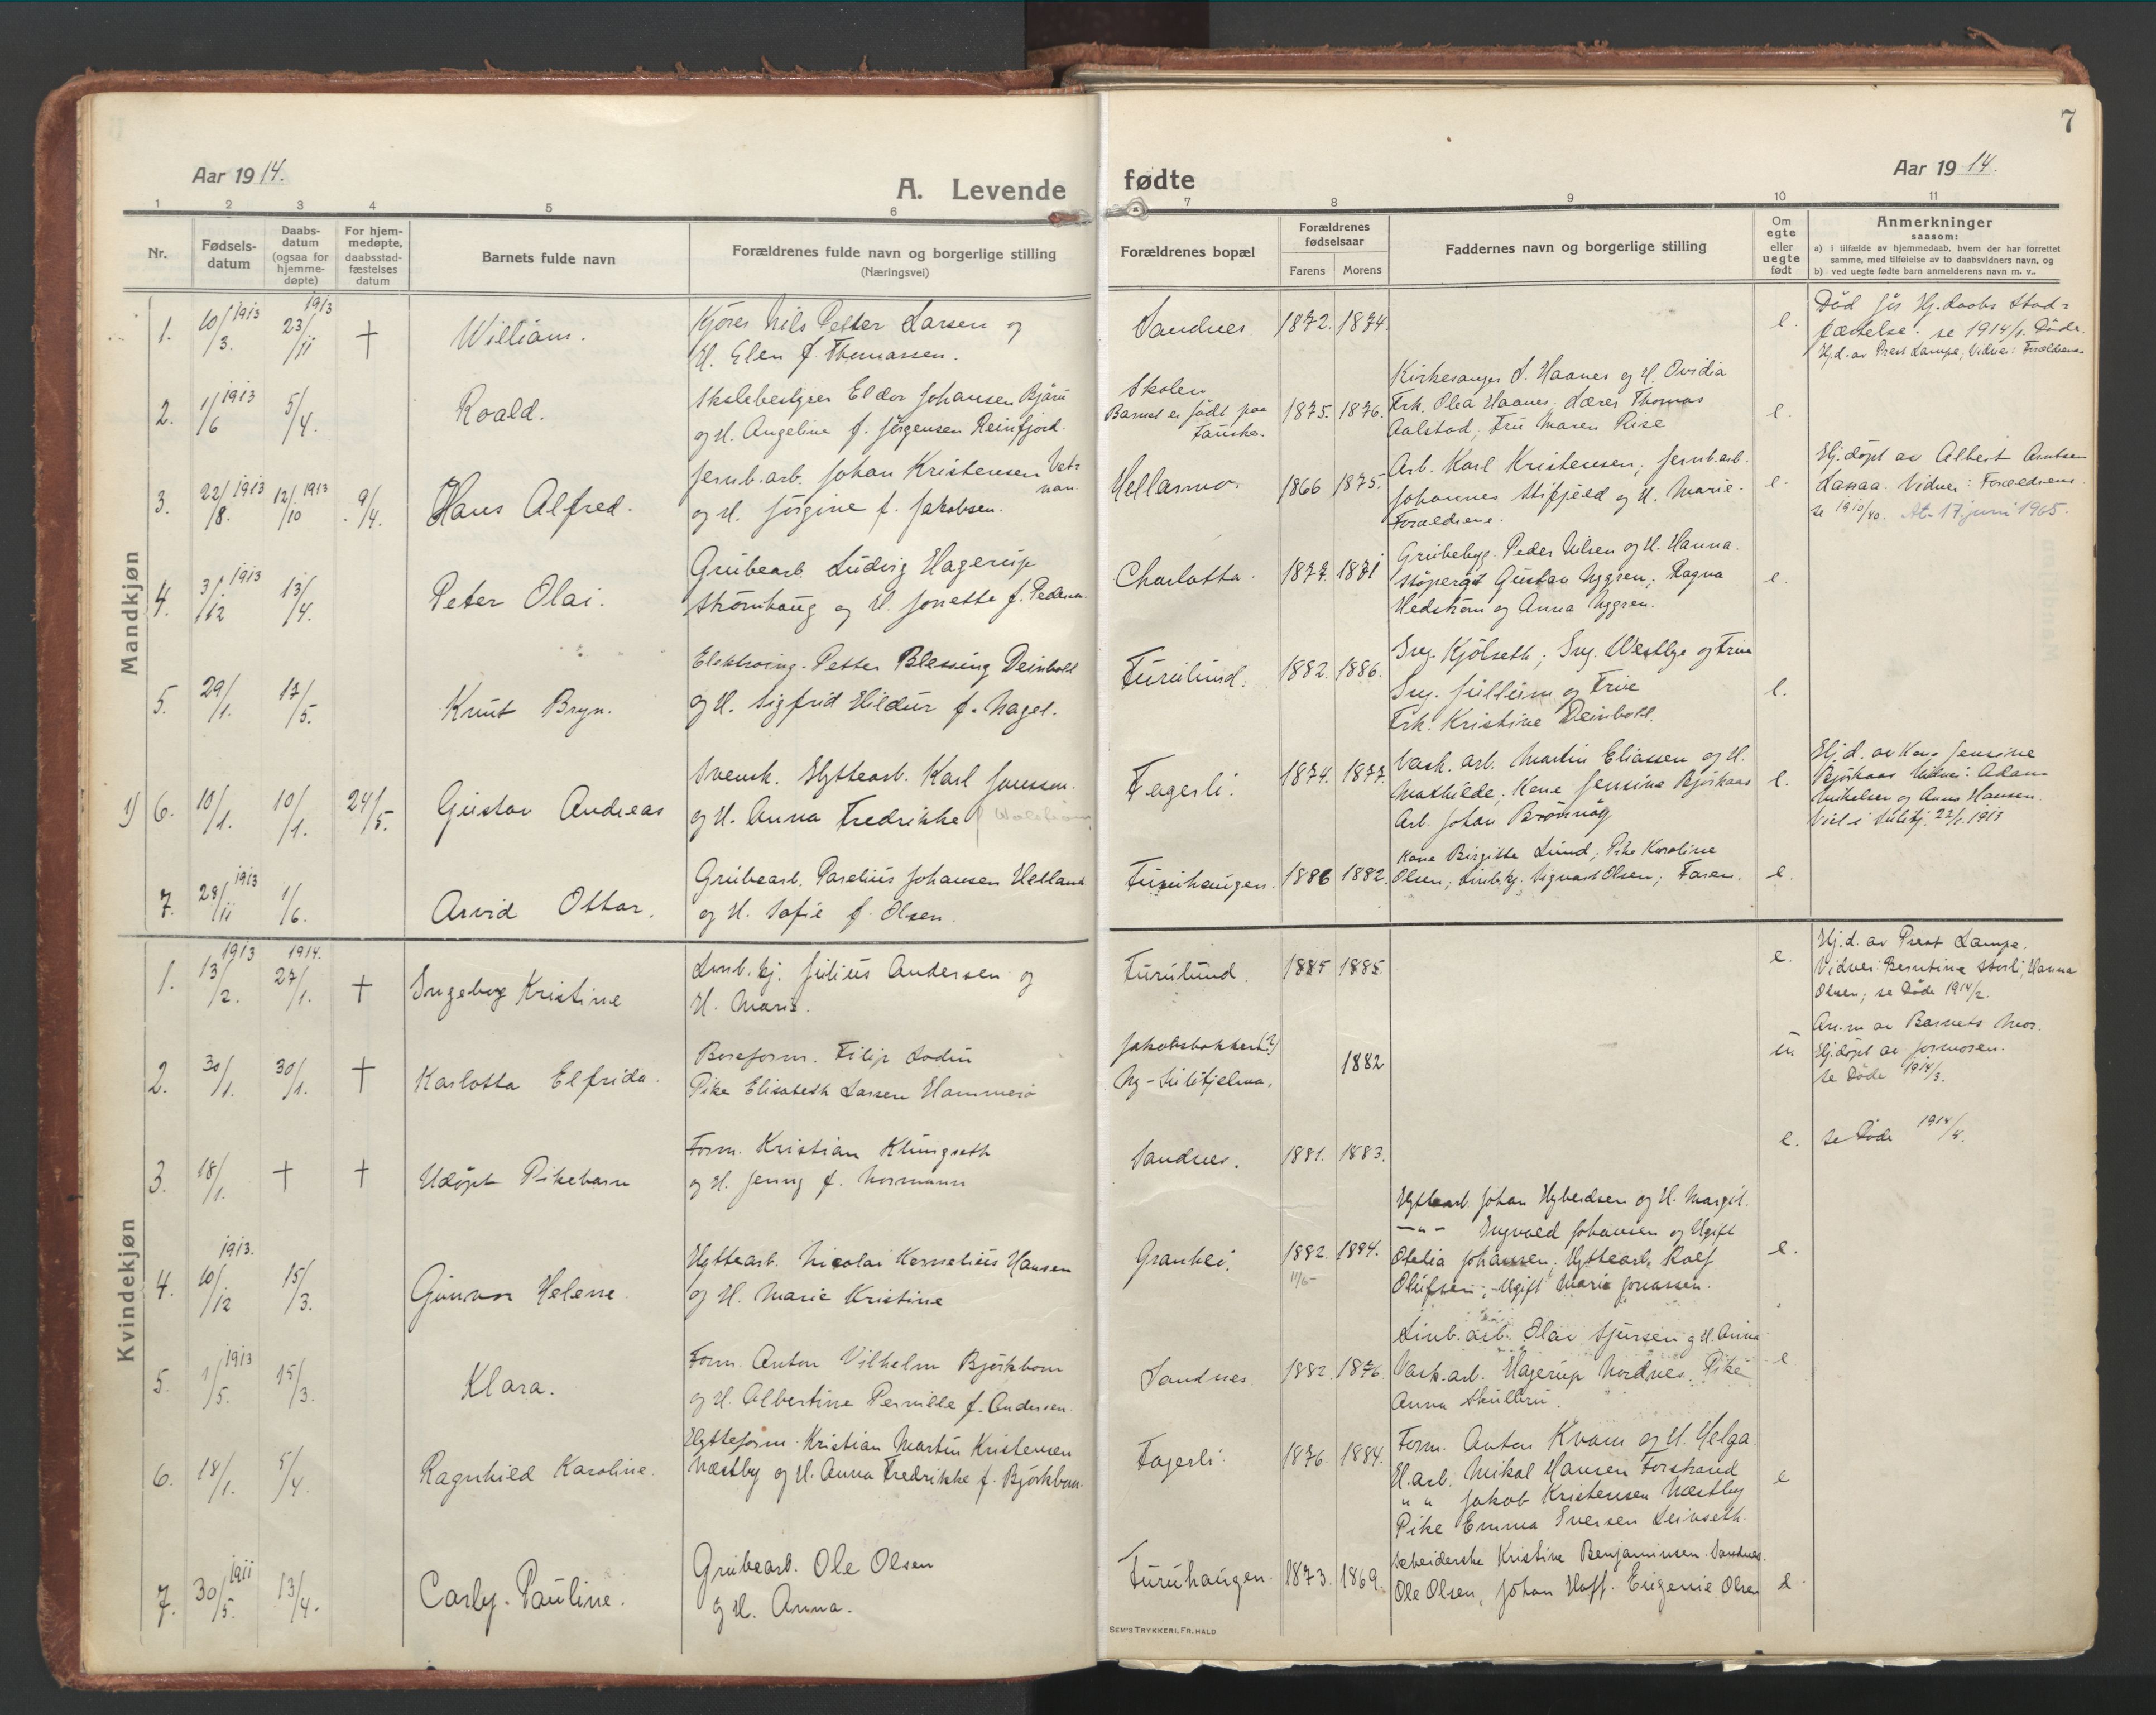 7
Aar 1914.
A. Levende fødte
Aar 1914.
1 2 3 4 5 6 7 8 9 10 11
Nr.
Fødsels-
datum
Daabs-
datum
(ogsaa for
hjemme-
døpte)
For hjem-
medøpte,
daabsstad-
fæstelses
datum
Barnets fulde navn
Forældrenes fulde navn og borgerlige stilling
(Næringsvei)
Forældrenes bopæl
Forældrenes
fødselsaar
Farens Morens
Faddernes navn og borgerlige stilling
Om
egte
eller
uegte
født
Anmerkninger
saasom:
a) i tilfælde av hjemmedaab, hvem der har forrettet
samme, med tilføielse av to daabsvidners navn, og
b) ved uegte fødte barn anmelderens navn m. v..
Mandkjøn
1. 10/3. 1913 23/11 1913 † William.
Kjører Nils Petter Larsen og
H. Elen f. Thomassen.
Sandnes 1872. 1874. e.
Død før Hj.daabs Stad-
fæstelse. se 1914/1. Døde.
Hj.d. av Prest Lampe, Vidner: Forældrene
2. 1/6 1913 5/4. Roald.
Skolebestyrer Eldor Johansen Bjøru
og H. Angeline f. Jørgensen Reinfjord.
Skolen
Barnet er født paa
Fauske.
1875. 1876.
Kirkesanger S. Haanes og H. Ovidia
Frk. Olea Haanes. Lærer Thomas
Aalstad, Fru Maren Rise
e.
3. 22/8. 1913 12/10 1913 9/4. Hans Alfred.
Jernb.arb. Johan Kristensen Vat-
nan
og H. Jørgine f. Jakobsen.
Hellarmo. 1866 1875.
Arb. Karl Kristensen; Jernb.arb.
Johannes Stifjeld og H. Marie.
Forældrene.
e.
Hj.døpt av Albert Arntsen
Lassaa. Vidner: Forældrene.
se 1910/40. At. 17 juni 1965.
4. 3/12 1913 13/4. Peter Olai.
Grubearb. Ludvig Hagerup
Strømhaug og H. Jonette f. Pedersen.
Charlotta. 1877. 1871
Grubebyg. Peder Nilsen og H. Hanna.
Gustav Nygren; Ragna
Hedstrøm og Anna Nygren.
e.
5. 29/1. 17/5. Knut Bryn.
Elektroing. Petter Blessing Deinboll
og H. Sigfrid Hildur f. Nagel.
Furulund. 1882. 1886.
Ing. Kjølseth; Ing. Westbye og Frue
Ing. Jullum og Frue
Frk. Kristine Deinboll.
e.
1) 6. 10/1. 10/1. 24/5. Gustav Andreas
Svensk. Hyttearb. Karl Jonsson
og H. Anna Fredrikke
Fagerli. 1874. 1877.
Vask. arb. Martin Eliassen og H.
Mathilde; Kone Jensine Bjørkaas
Arb. Johan Brønvåg
e.
Hj.d. av Kone Jensine
Bjørkaas Vidner: Adam
Mikelsen og Anna Hansen.
Viel i Sulitj. 22/1. 1913
7. 29/11 1913 1/6. Arvid Ottar.
Grubearb. Parelius Johansen Helland
og H. Sofie f. Olsen.
Furuhaugen. 1886 1882.
Kone Birgitte Lund; Pike Karoline
Olsen; Linbkj. Sigvart Olsen; Faren.
e.
Kvindekjøn
1. 13/2. 1913 27/1. 1914. † Ingeborg Kristine
Linb. kj. Julius Andersen og
H. Marie.
Furulund. 1885 1885. e.
Hj.d. av Prest Lampe.
Vidner: Berntine Storli; Hanna
Olsen; se Døde 1914/2.
2. 30/1. 30/1. † Karlotta Elfrida.
Boreform. Filip Lodin
Pike Elisabeth Larsen Hammerø
Jakobsbakken(?)
Ny-Sulitjelma.
1882 u.
An.m av Barnets Mor.
Hj.døpt av Jormoren.
se Døde 1914/3.
3. 18/1. † † Udøpt Pikebarn
Form. Kristian Klungseth
og H. Jenny f. Normann
Sandnes. 1881. 1883. e. se Døde 1914/4.
4. 10/12 1913. 15/3. Gunvor Helene.
Hyttearb. Nicolai Kornelius Hansen
og H. Marie Kristine
Granhei. 1882. 1884.
11/5
Hyttearb. Johan Hyberdsen og H. Margit.
—"— Ingvald Johansen og Ugift
Otelia Johansen; Hyttearb. Rolf
Olufsen; Ugift Marie Jonassen.
e.
5. 1/5. 1913 15/3. Klara.
Form. Anton Vilhelm Bjørkbom
og H. Albertine Pernille f. Andersen.
Sandnes. 1882. 1876.
Linb. arb. Olav Sjursen og H. Anna
Vask.arb. Hagerup Nordnes. Pike
Anna Skulbru.
e
6. 18/1. 5/4. Ragnhild Karoline.
Hytteform. Kristian Martin Kristensen
Næstby og H. Anna Fredrikke f. Bjørkbom.
Fagerli. 1876. 1884.
Form. Anton Kvam og H. Helga.
H.arb. Mikal Hansen Forstrand
" " Jakob Kristensen Næstby
Pike Emma Iversen Leivseth.
e
7. 30/5. 1911 13/4. Carly Pauline.
Grubearb. Ole Olsen
og H. Anna.
Furuhaugen. 1873. 1869.
Arbeiderske Kristine Benjaminsen Sandnes.
Ole Olsen, Johan Hoff. Eugenie Olsen
e.
SEM'S TRYKKERI, FR. HALD